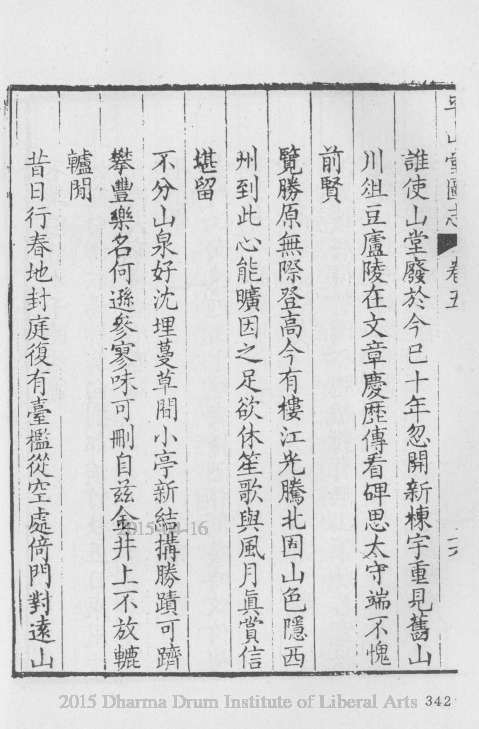 平山堂圖志 卷五
誰使山堂廢於今已十年忽開新棟宇重見舊山
川俎豆廬陵在文章慶歷傳看碑思太守端不愧
前賢
覽勝原無際登高今有樓江光騰北固山色隱西
州到此心能曠因之足欲休笙歌與風月眞賞信
堪留
不分山泉好沈埋蔓草間小亭新結搆勝蹟可躋
攀豐樂名何遜參寥味可刪自茲金井上不放轆
轤閒
昔日行春地封庭復有臺檻從空處倚門對遠山
2015-04-16
2015 Dharma Drum Institute of Liberal Arts
342